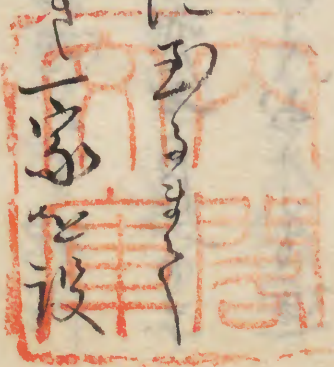 に至るまて
一家を設
内閣
文庫